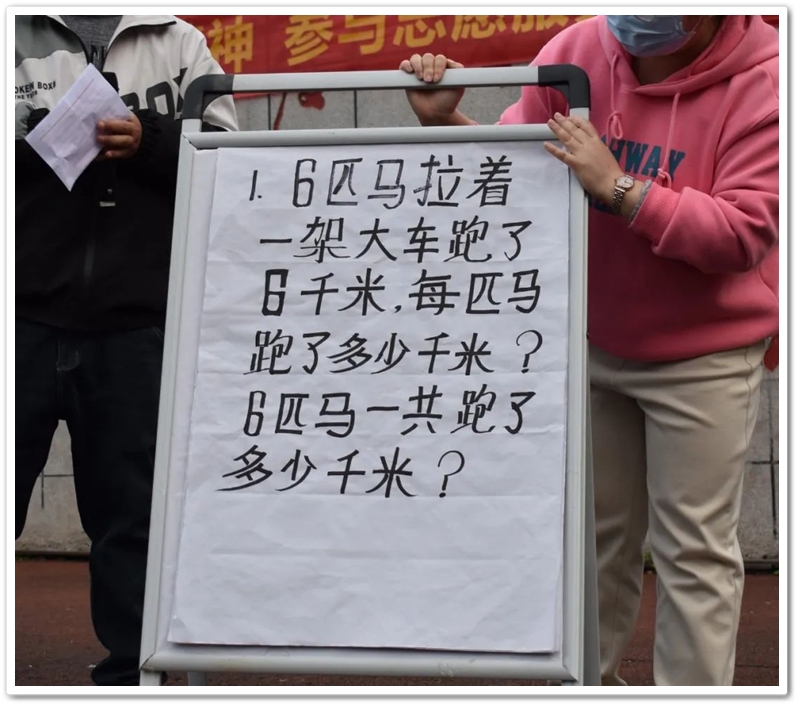 神 参与志愿服务
OKEN BOX
BOX
HWAY
1. 6匹马拉着
一架大车跑了
6千米,每匹马
跑了多少千米?
6匹马一共跑了
多少千米?